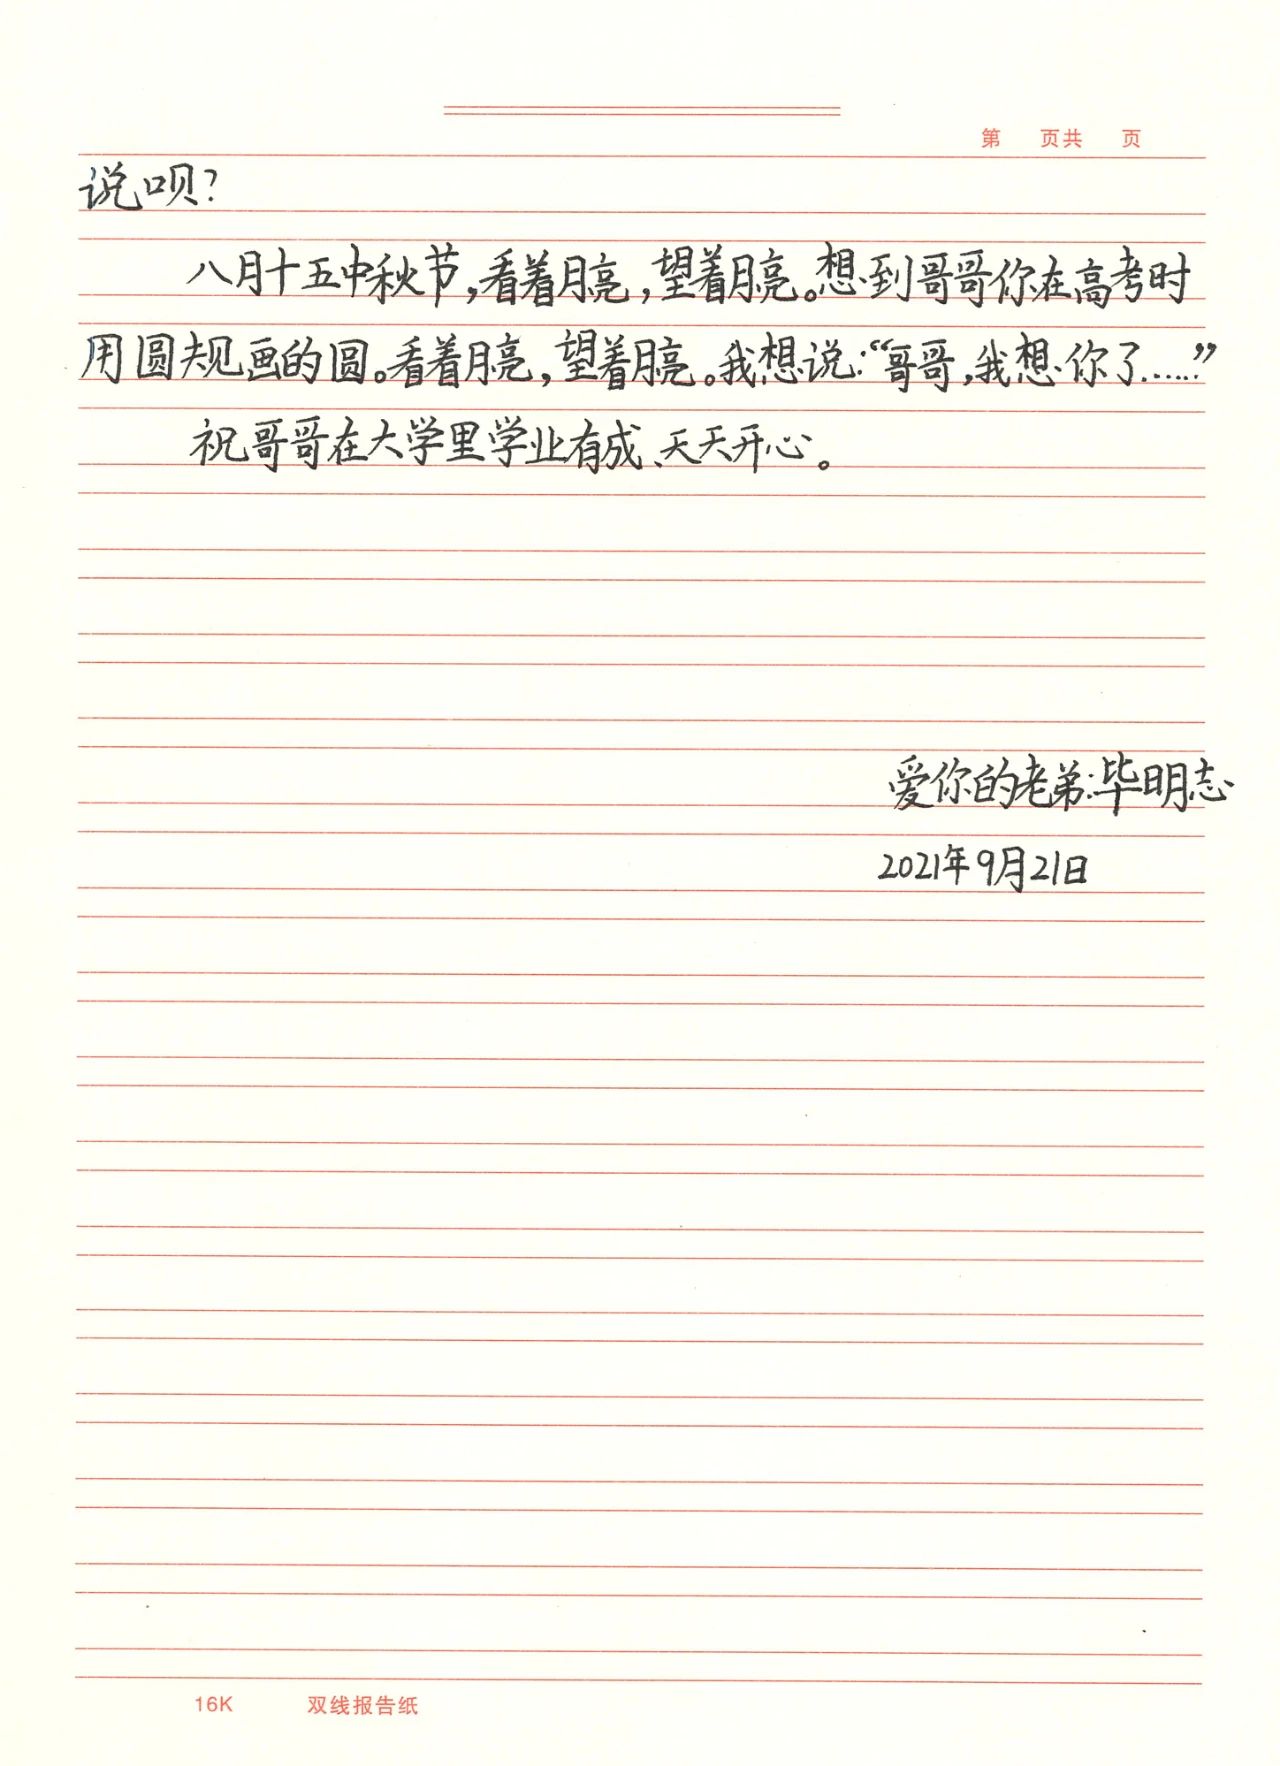 第 页共 页
说呗?
八月十五中秋节,看着月亮,望着月亮。想到哥哥你在高考时
用圆规画的圆。看着月亮,望着月亮。我想说:“哥哥,我想你了……”
祝哥哥在大学里学业有成、天天开心。
爱你的老弟:毕明志
2021年9月21日
16K 双线报告纸